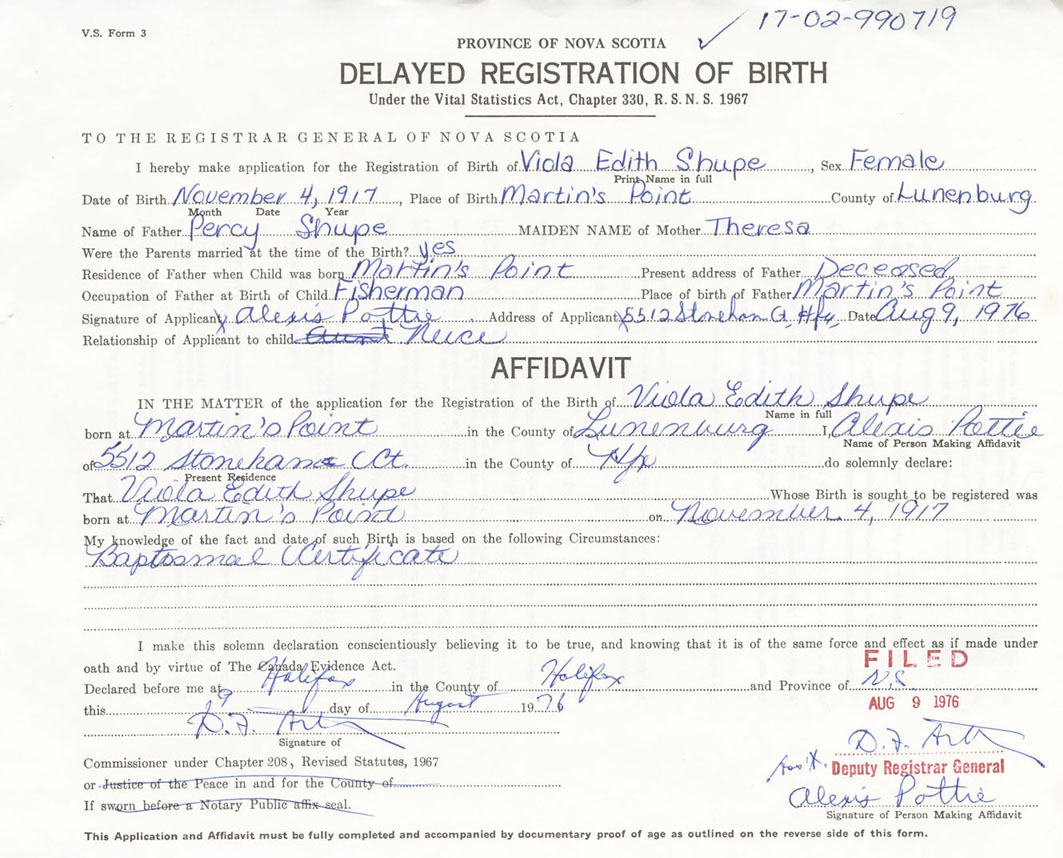 V.S. Form 3
17-02-990719
PROVINCE OF NOVA SCOTIA
DELAYED REGISTRATION OF BIRTH
Under the Vital Statistics Act, Chapter 330, R.S.N.S. 1967
TO THE REGISTRAR GENERAL OF NOVA SCOTIA
I hereby make application for the Registration of Birth of Viola Edith Shupe, Sex Female
Print Name in full
Date of Birth November 4, 1917, Place of Birth Martin's Point County of Lunenburg
Month Date Year
Name of Father Percy Shupe MAIDEN NAME of Mother Theresa
Were the Parents married at the time of the Birth? yes
Residence of Father when Child was born Martin's Point Present address of Father Deceased
Occupation of Father at Birth of Child Fisherman Place of birth of Father Martin's Point
Signature of Applicant X Alexis Pottie Address of Applicant X 5512 Stonehan Ct, Hfx, Date Aug 9, 1976
Relationship of Applicant to child Aunt Neice
AFFIDAVIT
IN THE MATTER of the application for the Registration of the Birth of Viola Edith Shupe
Name in full
born at Martin's Point in the County of Lunenburg I, Alexis Pottie
Name of Person Making Affidavit
of 5512 Stonehan Ct. in the County of Hfx do solemnly declare:
Present Residence
That Viola Edith Shupe Whose Birth is sought to be registered was
born at Martin's Point on November 4, 1917
My knowledge of the fact and date of such Birth is based on the following Circumstances:
Baptosmal Certificate
I make this solemn declaration conscientiously believing it to be true, and knowing that it is of the same force and effect as if made under
oath and by virtue of The Canada Evidence Act.
FILED
Declared before me at Halifax in the County of Halifax and Province of N.S
this 9 day of August 1976
AUG 9 1976
D.F. Arth
D.F. Arth
Signature of
Commissioner under Chapter 208, Revised Statutes, 1967
Ass't. Deputy Registrar General
or Justice of the Peace in and for the County of
Alexis Pottie
If sworn before a Notary Public affix seal.
Signature of Person Making Affidavit
This Application and Affidavit must be fully completed and accompanied by documentary proof of age as outlined on the reverse side of this form.